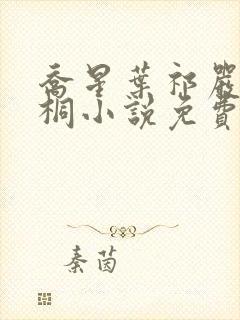 喬星葉祁嚴
桐小說免費
秦茵